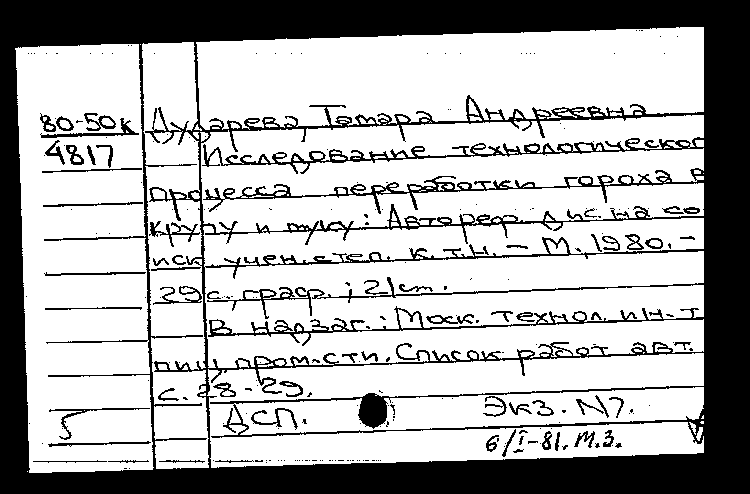 80-50к Дударева, Тамара Андреевна
4817 Исследование технологическог
процесса переработки гороха в
крупу и муку: Автореф. дис на со
иск. учен. степ. к. т. н. – М., 1980. –
29 с., граф.; 21 см.
В надзаг.: Моск. технол. ин-т
пищ. пром-сти. Список работ авт.
с. 28-29.
5 ДСП. Экз. N7.
6/I-81. М.З.